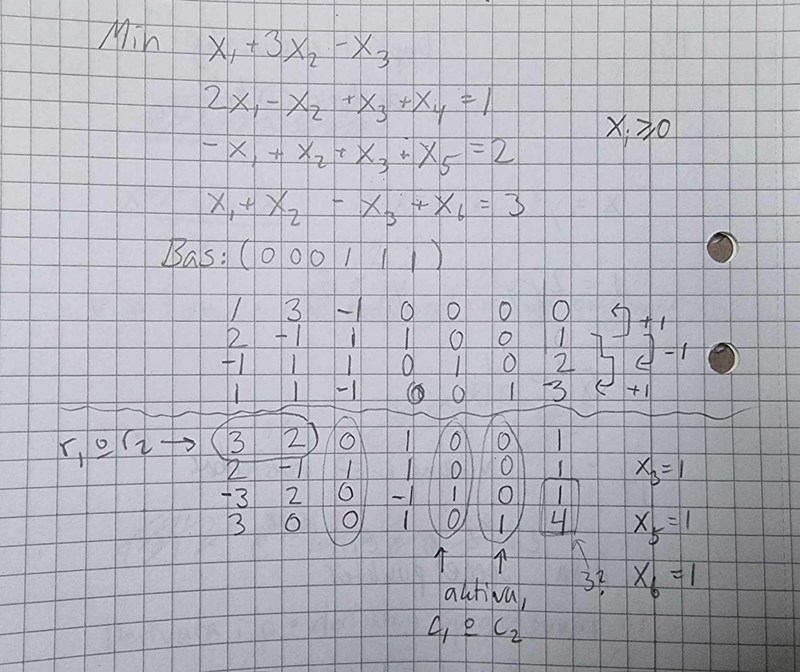 Min x₁ + 3x₂ - x₃
2x₁ - x₂ + x₃ + x₄ = 1
xᵢ ≥ 0
-x₁ + x₂ + x₃ + x₅ = 2
x₁ + x₂ - x₃ + x₆ = 3
Bas: (0 0 0 1 1 1)
1 3 -1 0 0 0 0 +1
2 -1 1 1 0 0 1 -1
-1 1 1 0 1 0 2
1 1 -1 0 0 1 3 +1
r₁ o r₂ → 3 2 0 1 0 0 1
2 -1 1 1 0 0 1 x₃ = 1
-3 2 0 -1 1 0 1 x₅ = 1
3 0 0 1 0 1 4 3? x₆ = 1
aktiva,
c₁ o c₂